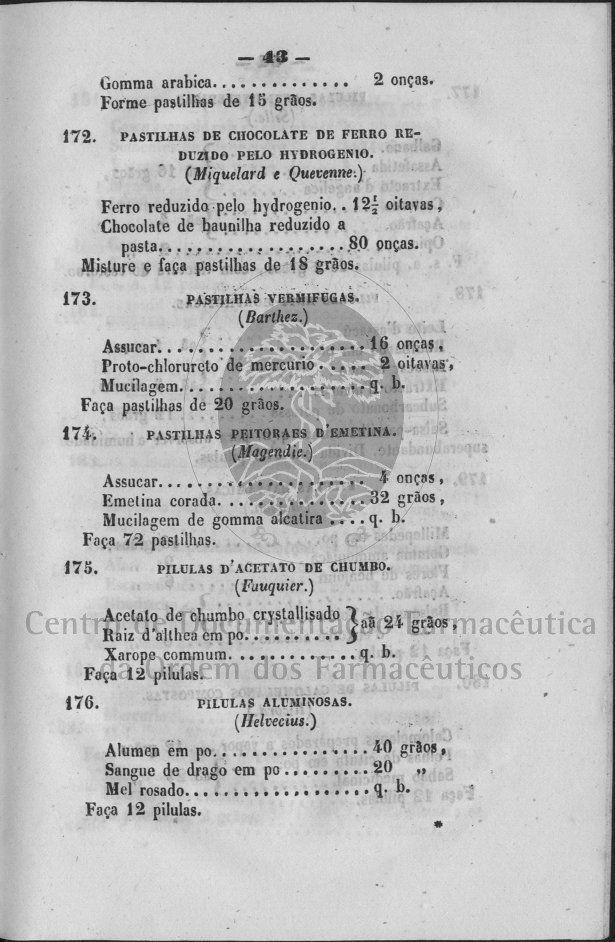 — 43 —
Gomma arabica.............. 2 onças.
Forme pastilhas de 15 grãos.
172. PASTILHAS DE CHOCOLATE DE FERRO RE-
DUZIDO PELO HYDROGENIO.
(Miquelard e Quevenne.)
Ferro reduzido pelo hydrogenio.. 12½ oitavas,
Chocolate de baunilha reduzido a
pasta................... 80 onças.
Misture e faça pastilhas de 18 grãos.
173. PASTILHAS VERMIFUGAS.
(Barthez.)
Assucar..................... 16 onças,
Proto-chlorureto de mercurio ..... 2 oitavas,
Mucilagem................... q. b.
Faça pastilhas de 20 grãos.
174. PASTILHAS PEITORAES D'EMETINA.
(Magendie.)
Assucar..................... 4 onças,
Emetina corada............... 32 grãos,
Mucilagem de gomma alcatira .... q. b.
Faça 72 pastilhas.
175. PILULAS D'ACETATO DE CHUMBO.
(Fouquier.)
Acetato de chumbo crystallisado } aã 24 grãos,
Raiz d'althea em po..........
Xarope commum............. q. b.
Faça 12 pilulas.
176. PILULAS ALUMINOSAS.
(Helvecius.)
Alumen em po................ 40 grãos,
Sangue de drago em po......... 20 „
Mel rosado................... q. b.
Faça 12 pilulas.
*
Centro de Documentação Farmacêutica
da Ordem dos Farmacêuticos